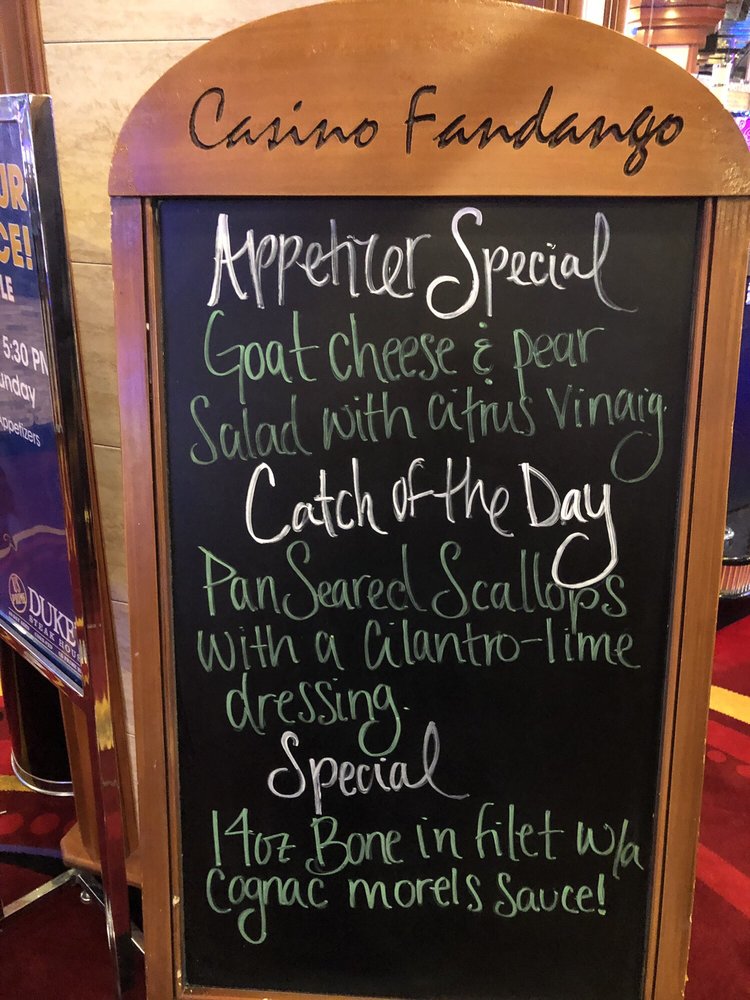 Casino Fandango
Appetizer Special
Goat cheese & pear
Salad with citrus Vinaig.
Catch of the Day
Pan Seared Scallops
with a cilantro-lime
dressing.
Special
14oz Bone in filet w/a
Cognac morels sauce!
UR
CE!
LE
5:30 PM
unday
Appetizers
DUKE
STEAK HOU